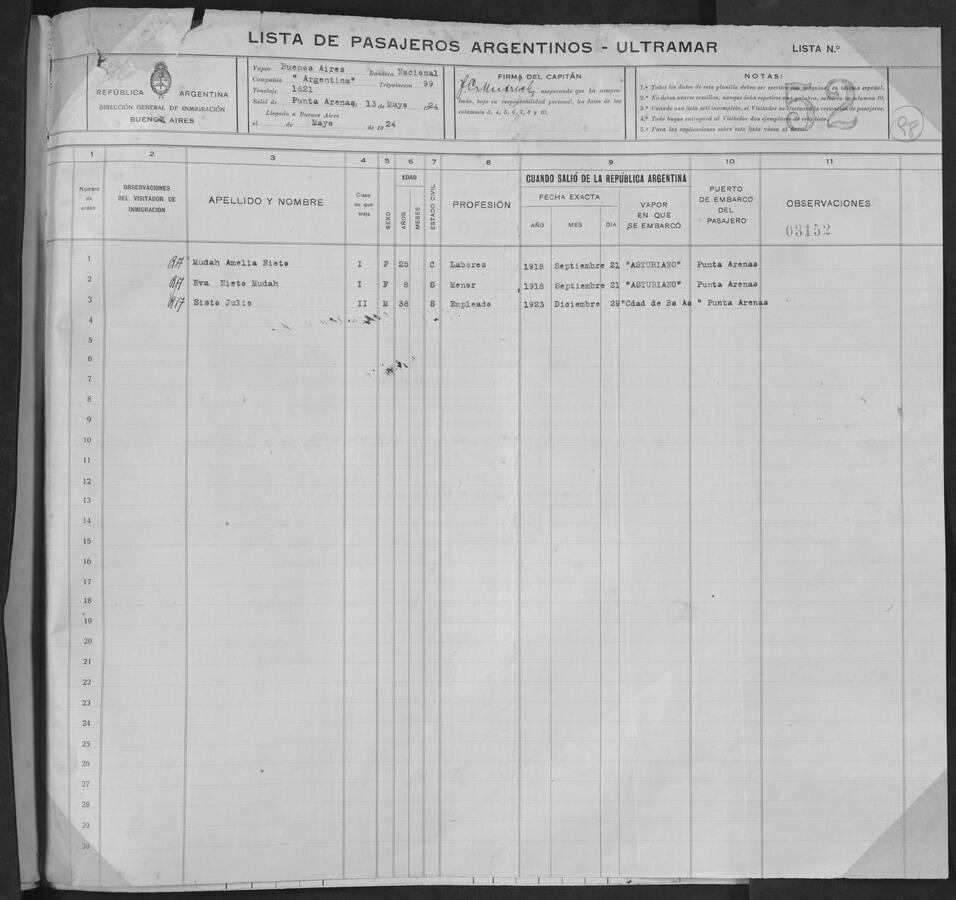 LISTA DE PASAJEROS ARGENTINOS - ULTRAMAR
LISTA N.º
REPÚBLICA ARGENTINA
DIRECCIÓN GENERAL DE INMIGRACIÓN
BUENOS AIRES
Vapor Buenos Aires Bandera Nacional
Compañía "Argentina" Tripulación 99
Tonelaje 1621
Salió de Punta Arenas, 13 de Mayo 1924
Llegado a Buenos Aires
el de Mayo de 1924
FIRMA DEL CAPITÁN
asegurando que ha compro-
bado, bajo su responsabilidad personal, los datos de las
columnas 3, 4, 5, 6, 7, 8 y 10.
NOTAS:
1.ª Todos los datos de esta planilla deben ser escritos con máquina, en idioma español.
2.ª No deben usarse comillas, aunque deba repetirse una palabra, salvo en la columna 10.
3.ª Cuando una lista esté incompleta, el Visitador no efectuará la revisación de pasajeros.
4.ª Todo buque entregará al Visitador dos ejemplares de esta lista.
5.ª Para las explicaciones sobre esta lista véase al dorso.
52
98
1 2 3 4 5 6 7 8 9 10 11
Número de orden
OBSERVACIONES DEL VISITADOR DE INMIGRACIÓN
APELLIDO Y NOMBRE
Clase en que viaja
SEXO
EDAD
AÑOS
MESES
ESTADO CIVIL
PROFESIÓN
CUANDO SALIÓ DE LA REPÚBLICA ARGENTINA
FECHA EXACTA
AÑO MES DÍA
VAPOR EN QUE SE EMBARCÓ
PUERTO DE EMBARCO DEL PASAJERO
OBSERVACIONES
03152
1 Mudah Amelia Nieto I F 25 C Labores 1918 Septiembre 21 "ASTURIANO" Punta Arenas
2 Eva Nieto Mudah I F 8 S Menor 1918 Septiembre 21 "ASTURIANO" Punta Arenas
3 Sisto Julio II M 38 S Empleado 1923 Diciembre 29 "Cdad de Bs As " Punta Arenas
4
5
6
7
8
9
10
11
12
13
14
15
16
17
18
19
20
21
22
23
24
25
26
27
28
29
30